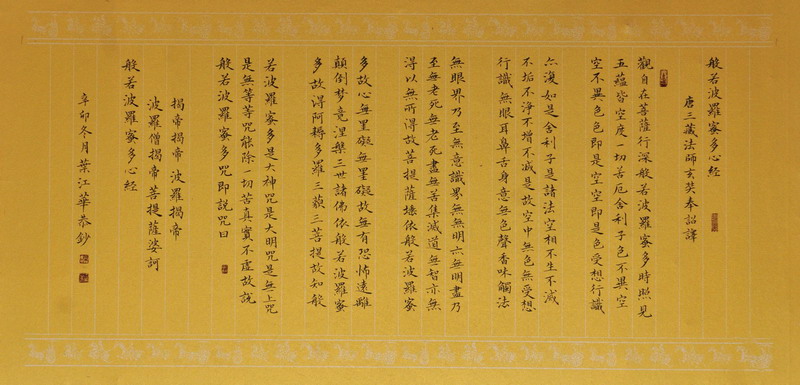 般若波羅蜜多心經
唐三藏法師玄奘奉詔譯
觀自在菩薩行深般若波羅蜜多時照見
五蘊皆空度一切苦厄舍利子色不異空
空不異色色即是空空即是色受想行識
亦復如是舍利子是諸法空相不生不滅
不垢不淨不增不減是故空中無色無受想
行識無眼耳鼻舌身意無色聲香味觸法
無眼界乃至無意識界無無明亦無明盡乃
至無老死無老死盡無苦集滅道無智亦無
得以無所得故菩提薩埵依般若波羅蜜
多故心無罣礙無罣礙故無有恐怖遠離
顛倒夢竟涅槃三世諸佛依般若波羅蜜
多故得阿耨多羅三藐三菩提故知般
若波羅蜜多是大神咒是大明咒是無上咒
是無等等咒能除一切苦真實不虛故說
般若波羅蜜多咒即說咒曰
揭帝揭帝 波羅揭帝
波羅僧揭帝 菩提薩婆訶
般若波羅蜜多心經
辛卯冬月葉江華恭鈔